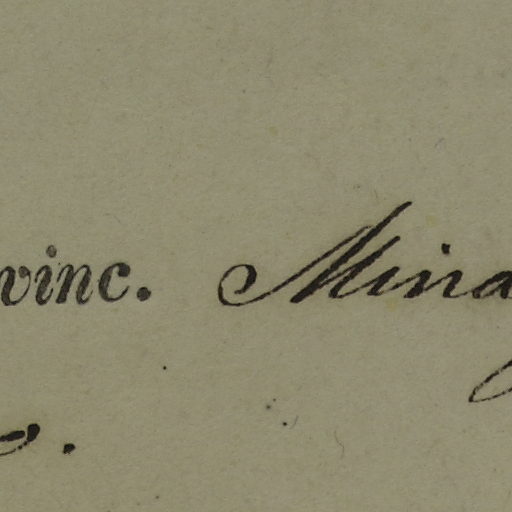 vinc. Mina